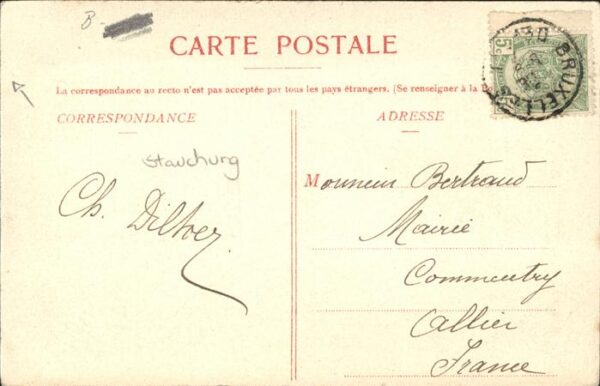 B-
CARTE POSTALE
La correspondance au recto n'est pas acceptée par tous les pays étrangers. (Se renseigner à la
CORRESPONDANCE
ADRESSE
BRUXELLES 1
5c
Stauchung
Ch.
Monsieur Bertraud
Mairie
Commentry
Allier
France